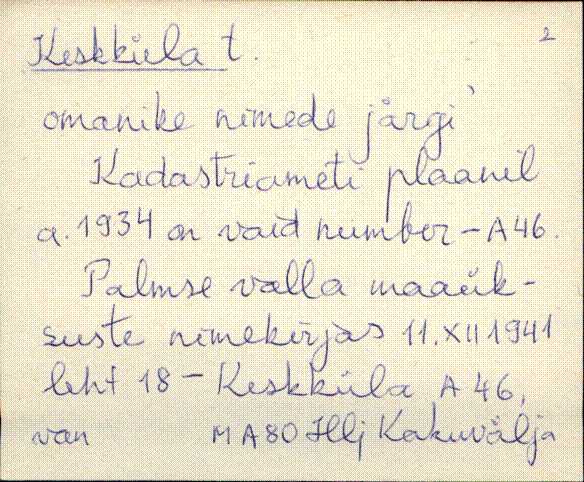 2
Keskküla t.
omanike nimede järgi
Kadastriameti plaanil
a. 1934 on vaid number - A 46.
Palmse valla maaük-
suste nimekirjas 11.XII 1941
leht 18 - Keskküla A 46,
van MA80 Hlj Kakuvälja